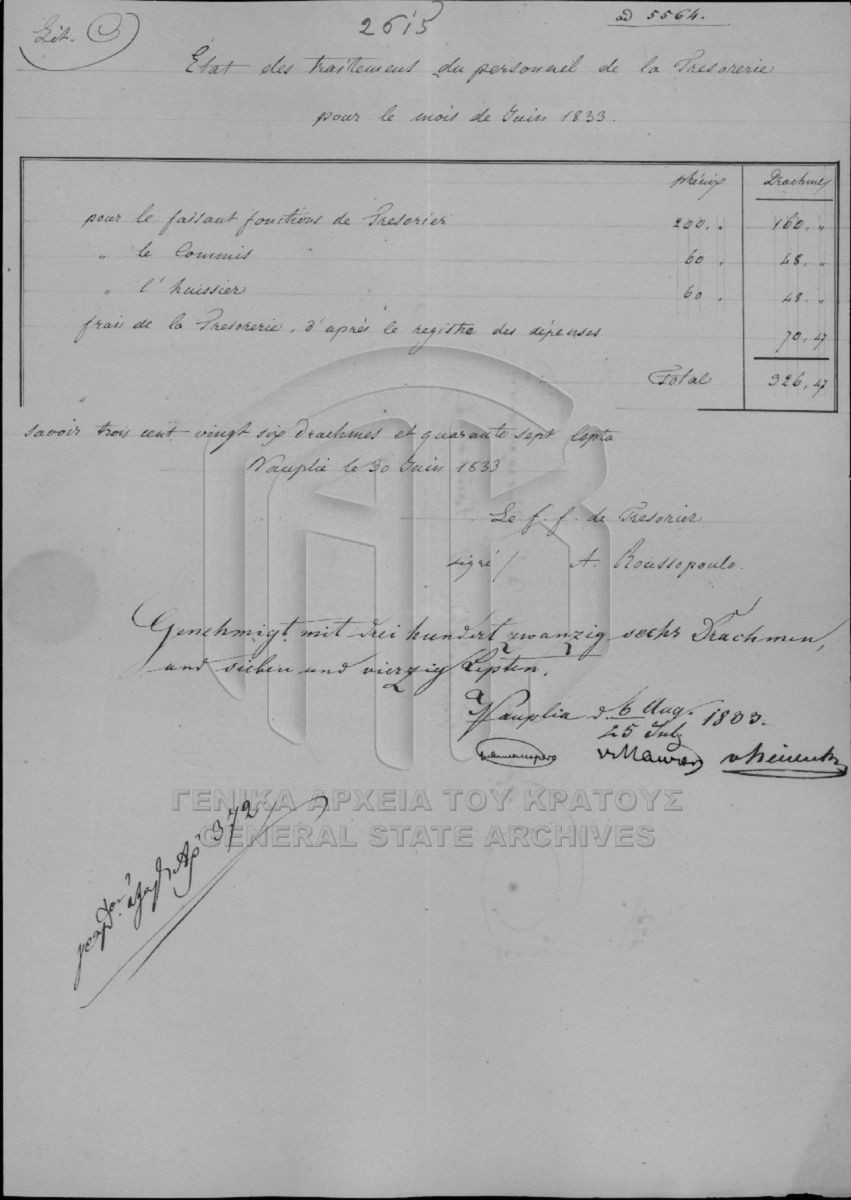 Lit. C
2615
ad 5564.
État des traitemens du personnel de la Tresorerie
pour le mois de Juin 1833.
phénix Drachmes
pour le faisant fonctions de Tresorier 200. " 160. "
" le Commis 60 " 48. "
" l'huissier 60 " 48. "
frais de la Tresorerie, d'après le registre des dépenses 70, 47
Total 326, 47
savoir trois cent vingt six Drachmes et quarante sept lepta
Nauplie le 30 Juin 1833
Le f. f. de Tresorier
signé / A. Roussopoulo.
Genehmigt mit drei hundert zwanzig sechs Drachmen,
und sieben und vierzig Lepten.
Nauplia d. 6 Aug. 1833.
25 July
v Maurer v Heideck
Αρ 372
ΓΕΝΙΚΑ ΑΡΧΕΙΑ ΤΟΥ ΚΡΑΤΟΥΣ
GENERAL STATE ARCHIVES